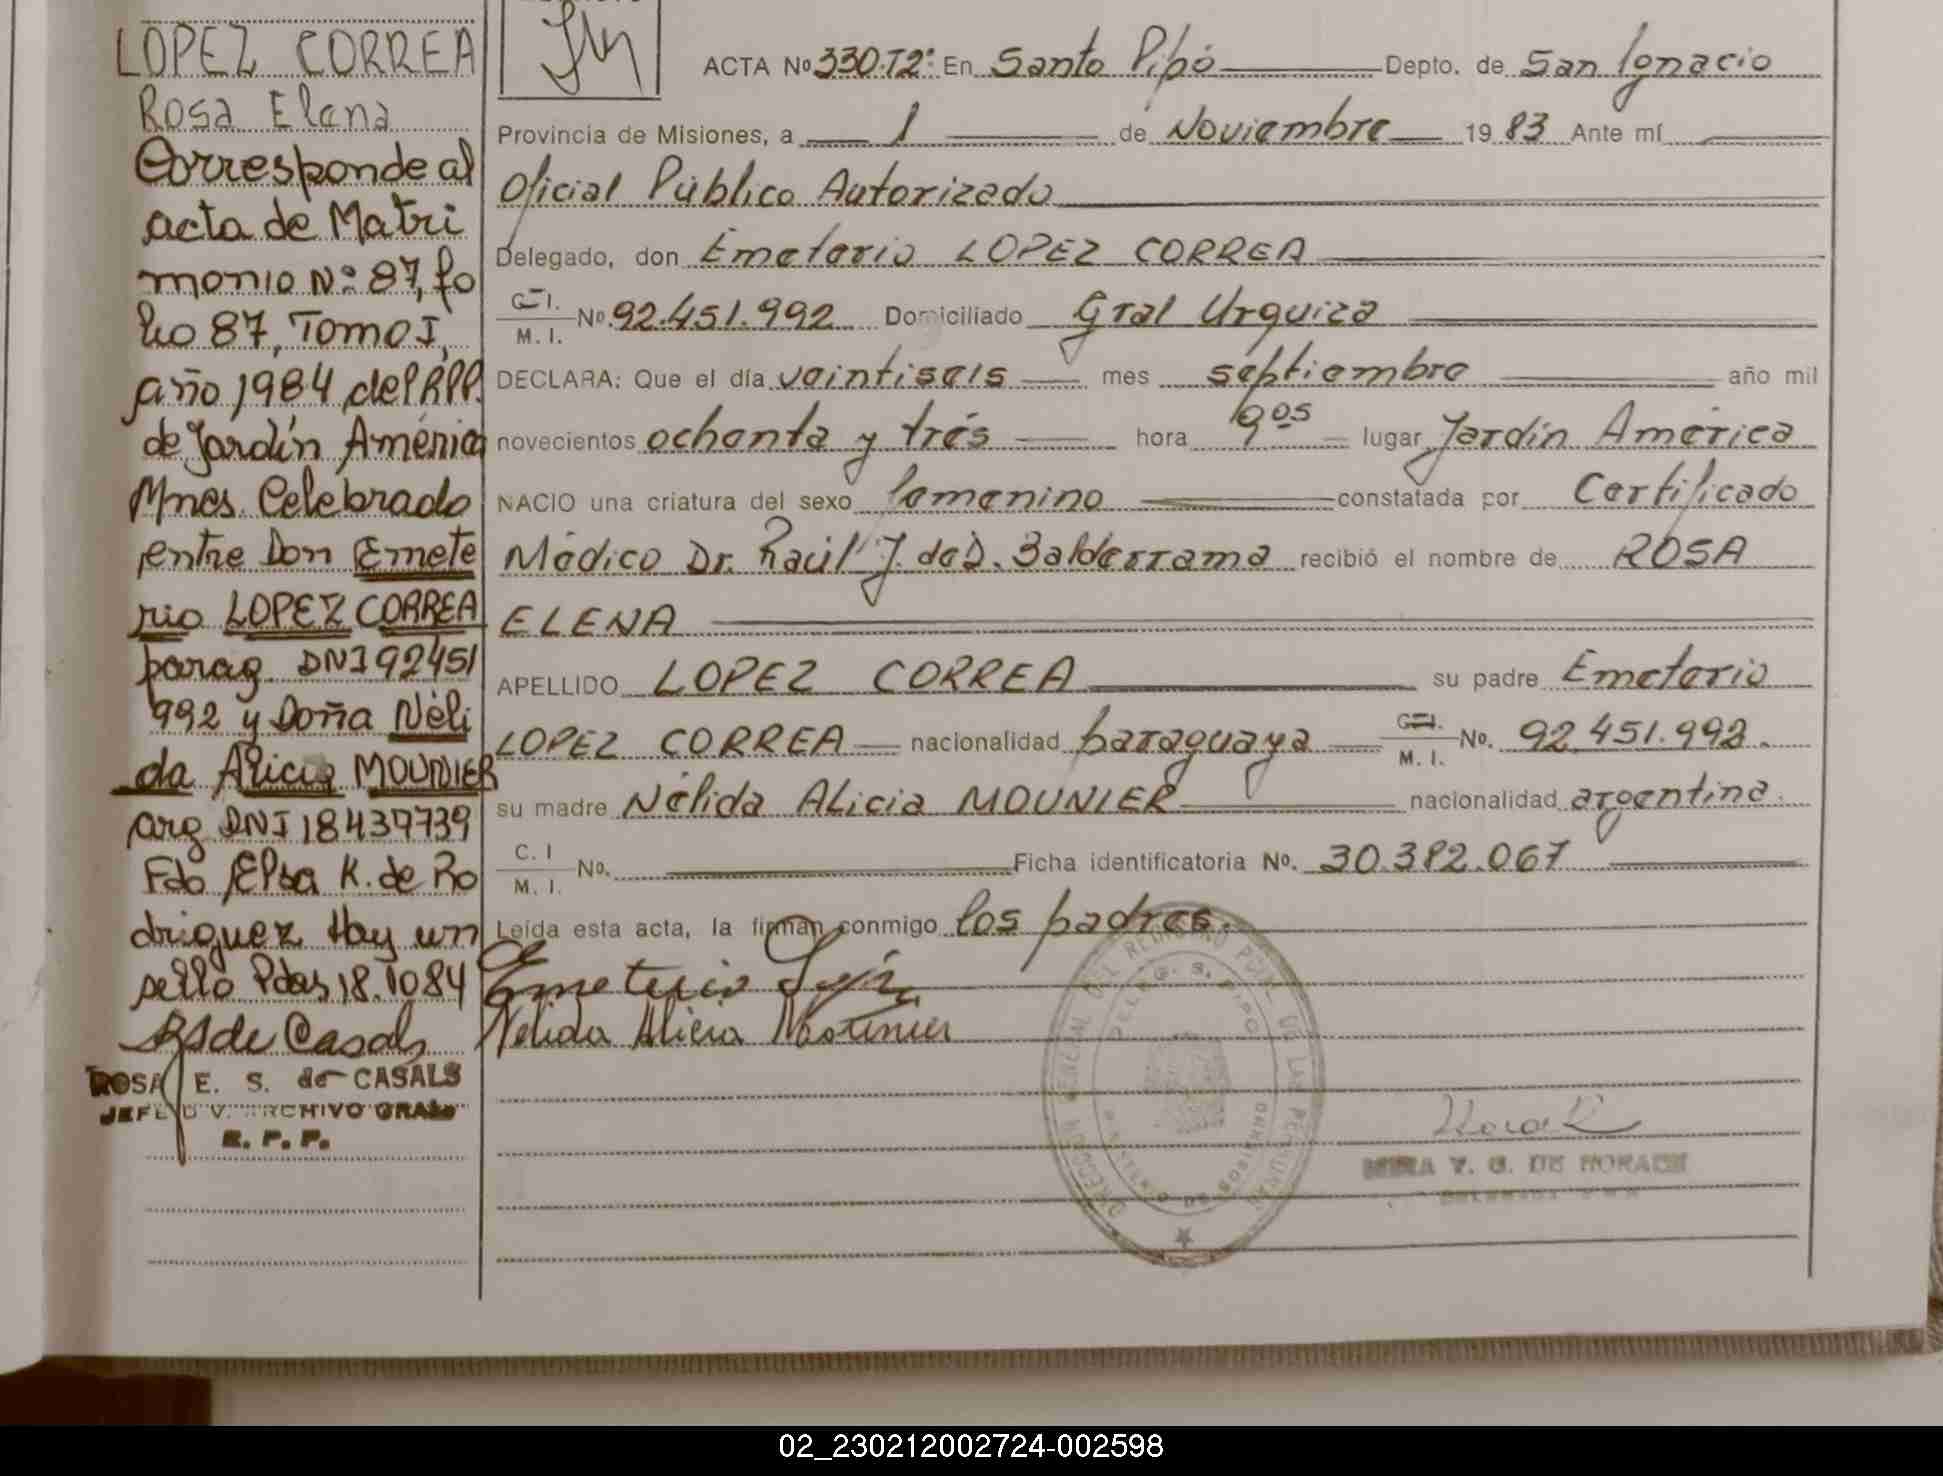 LOPEZ CORREA
Rosa Elena
Corresponde al
acta de Matri
monio Nº 87, fo
lio 87, Tomo I,
año 1984 del RPP.
de Jardín América
Mnes. Celebrado
entre Don Emete
rio LOPEZ CORREA
parag. DNI 92451
992 y Doña Néli
da Alicia MOUNIER
arg DNI 18437739
Fdo Elsa K. de Ro
driguez Hay un
sello Pdas 18.1084
RS de Casals
ROSA E. S. de CASALS
JEFE DIV. ARCHIVO GRAL
R. P. P.
ACTA Nº 330.T2º En Santo Pipó Depto. de San Ignacio
Provincia de Misiones, a 1 de Noviembre 1983 Ante mí
Oficial Público Autorizado
Delegado, don Emeterio LOPEZ CORREA
C. I. M. I. Nº 92.451.992 Domiciliado Gral Urquiza
DECLARA: Que el día veintiseis mes septiembre año mil
novecientos ochenta y trés hora 9 05 lugar Jardín América
NACIO una criatura del sexo femenino constatada por Certificado
Médico Dr. Raúl J. de D. Balderrama recibió el nombre de ROSA
ELENA
APELLIDO LOPEZ CORREA su padre Emeterio
LOPEZ CORREA nacionalidad paraguaya C. I. M. I. No. 92.451.992.
su madre Nélida ALicia MOUNIER nacionalidad argentina.
C. I M. I. No. Ficha identificatoria No. 30.382.067
Leída esta acta, la firman conmigo los padres.
Emeterio
Nelida Alicia Mounier
DIRECCION GENERAL DEL REGISTRO PCIAL. DE LAS PERSONAS
DELEG. S. PIPO
MINISTERIO DE GOBIERNO
Y. G. DE HORACEK
02_230212002724-002598